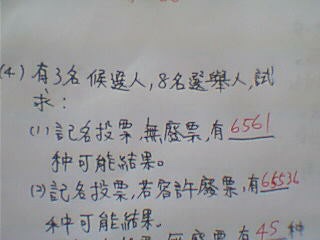 (4) 有3名候選人,8名選舉人,試
求:
(1) 記名投票,無廢票,有 6561
種可能結果。
(2) 記名投票,若容許廢票,有 65536
種可能結果。
無廢票,有 45 種